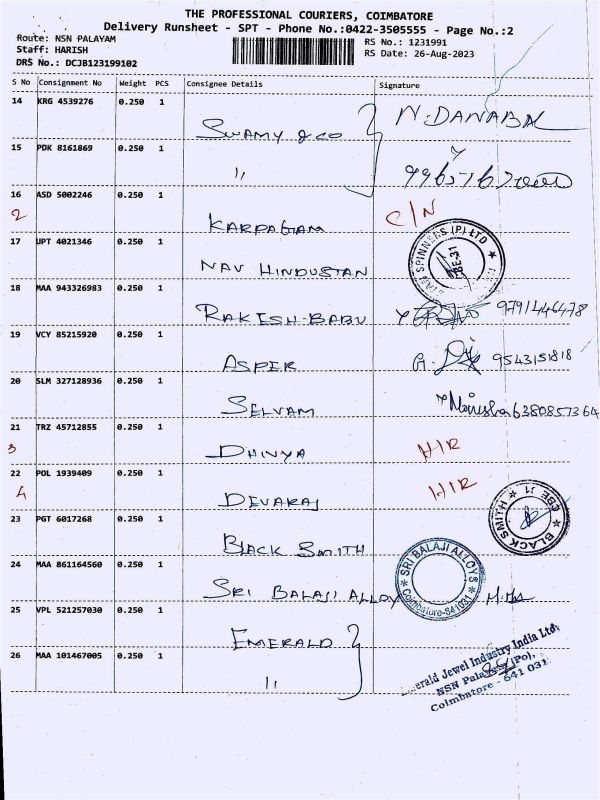 THE PROFESSIONAL COURIERS, COIMBATORE
Delivery Runsheet - SPT - Phone No.:0422-3505555 - Page No.:2
Route: NSN PALAYAM
Staff: HARISH
DRS No.: DCJB123199102
RS No.: 1231991
RS Date: 26-Aug-2023
S No Consignment No Weight PCS Consignee Details Signature
14 KRG 4539276 0.250 1 SWAMY & CO N.DANABAL
15 PDK 8161869 0.250 1 "
16 ASD 5002246 0.250 1 KARPAGAM C/N
2
17 UPT 4021346 0.250 1 NAV HINDUSTAN
SPINNERS (P) LTD
18 MAA 943326983 0.250 1 RAKESH BABU 9791446478
19 VCY 85215920 0.250 1 ASPER 9543151818
20 SLM 327128936 0.250 1 SELVAM Manisha 6380857364
21 TRZ 45712855 0.250 1 DHIVYA H/R
3
22 POL 1939409 0.250 1 DEVARAJ H/R
4
23 PGT 6017268 0.250 1 BLACK SMITH
BLACK SMITH ★ CBE
24 MAA 861164560 0.250 1 SRI BALAJI ALLOY
SRI BALAJI ALLOYS
Coimbatore-641031
25 VPL 521257030 0.250 1 EMERALD
26 MAA 101467005 0.250 1 "
erald Jewel Industry India Ltd,
NSN (Po),
Coimbatore - 641 031